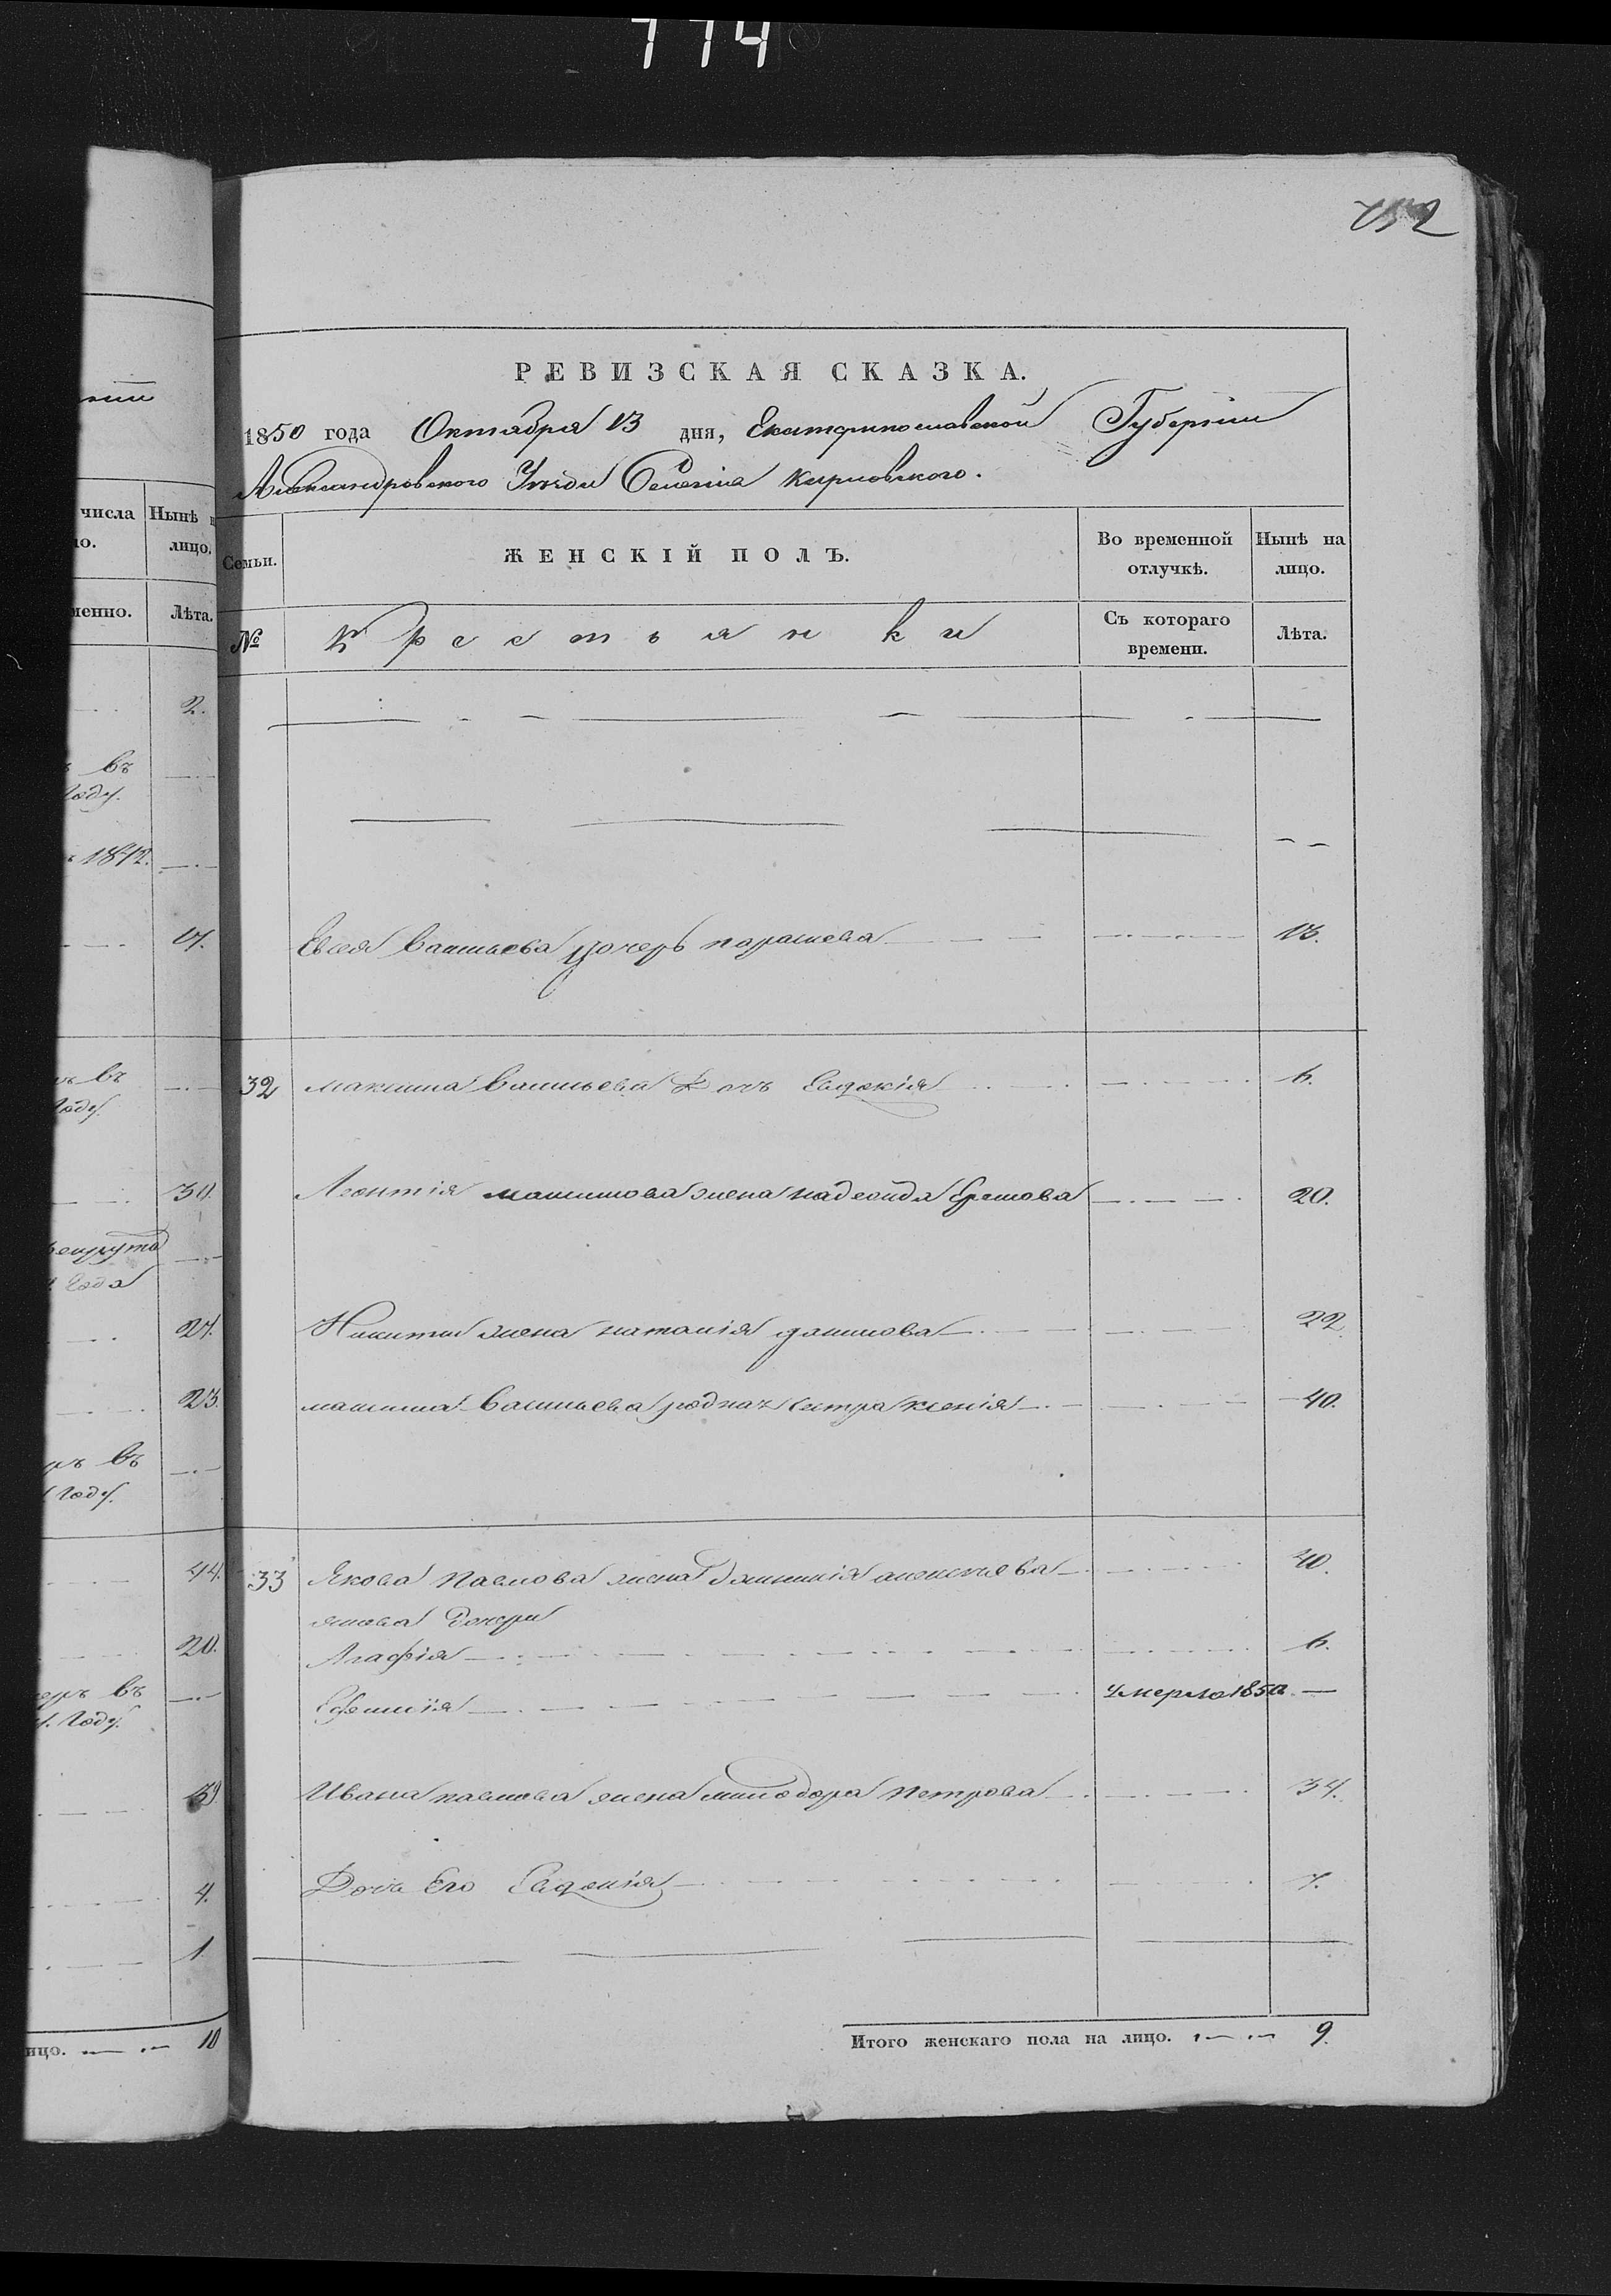 774
752
РЕВИЗСКАЯ СКАЗКА.
1850 года Октября 13 дня, Екатеринославской Губерніи
Александровского Уезда Селенія
Семьи. ЖЕНСКІЙ ПОЛЪ. Во временной отлучкѣ. Нынѣ на лицо.
№ Крестьянки Съ котораго времени. Лѣта.
Васильева дочерь 13.
32 максима Васильева Дочь Евдокія 6.
Леонтія максимова жена 20.
Никиты жена наталія 22
максима Васильева родная сестра ксенія 40.
33 Якова Павлова жена 40.
якова Дочери
Агафія 6.
Ефимія Умерла 1850 —
Ивана павлова жена минодора Петрова 34.
Дочь Его Евдокія 7.
Итого женскаго пола на лицо. 9.
числа Нынѣ
ло. лицо.
менно. Лѣта.
2.
въ
Году.
1842.
17.
въ
Году.
30.
Года
27.
23.
въ
Году.
44.
20.
въ
Году.
4.
1
ицо. 10